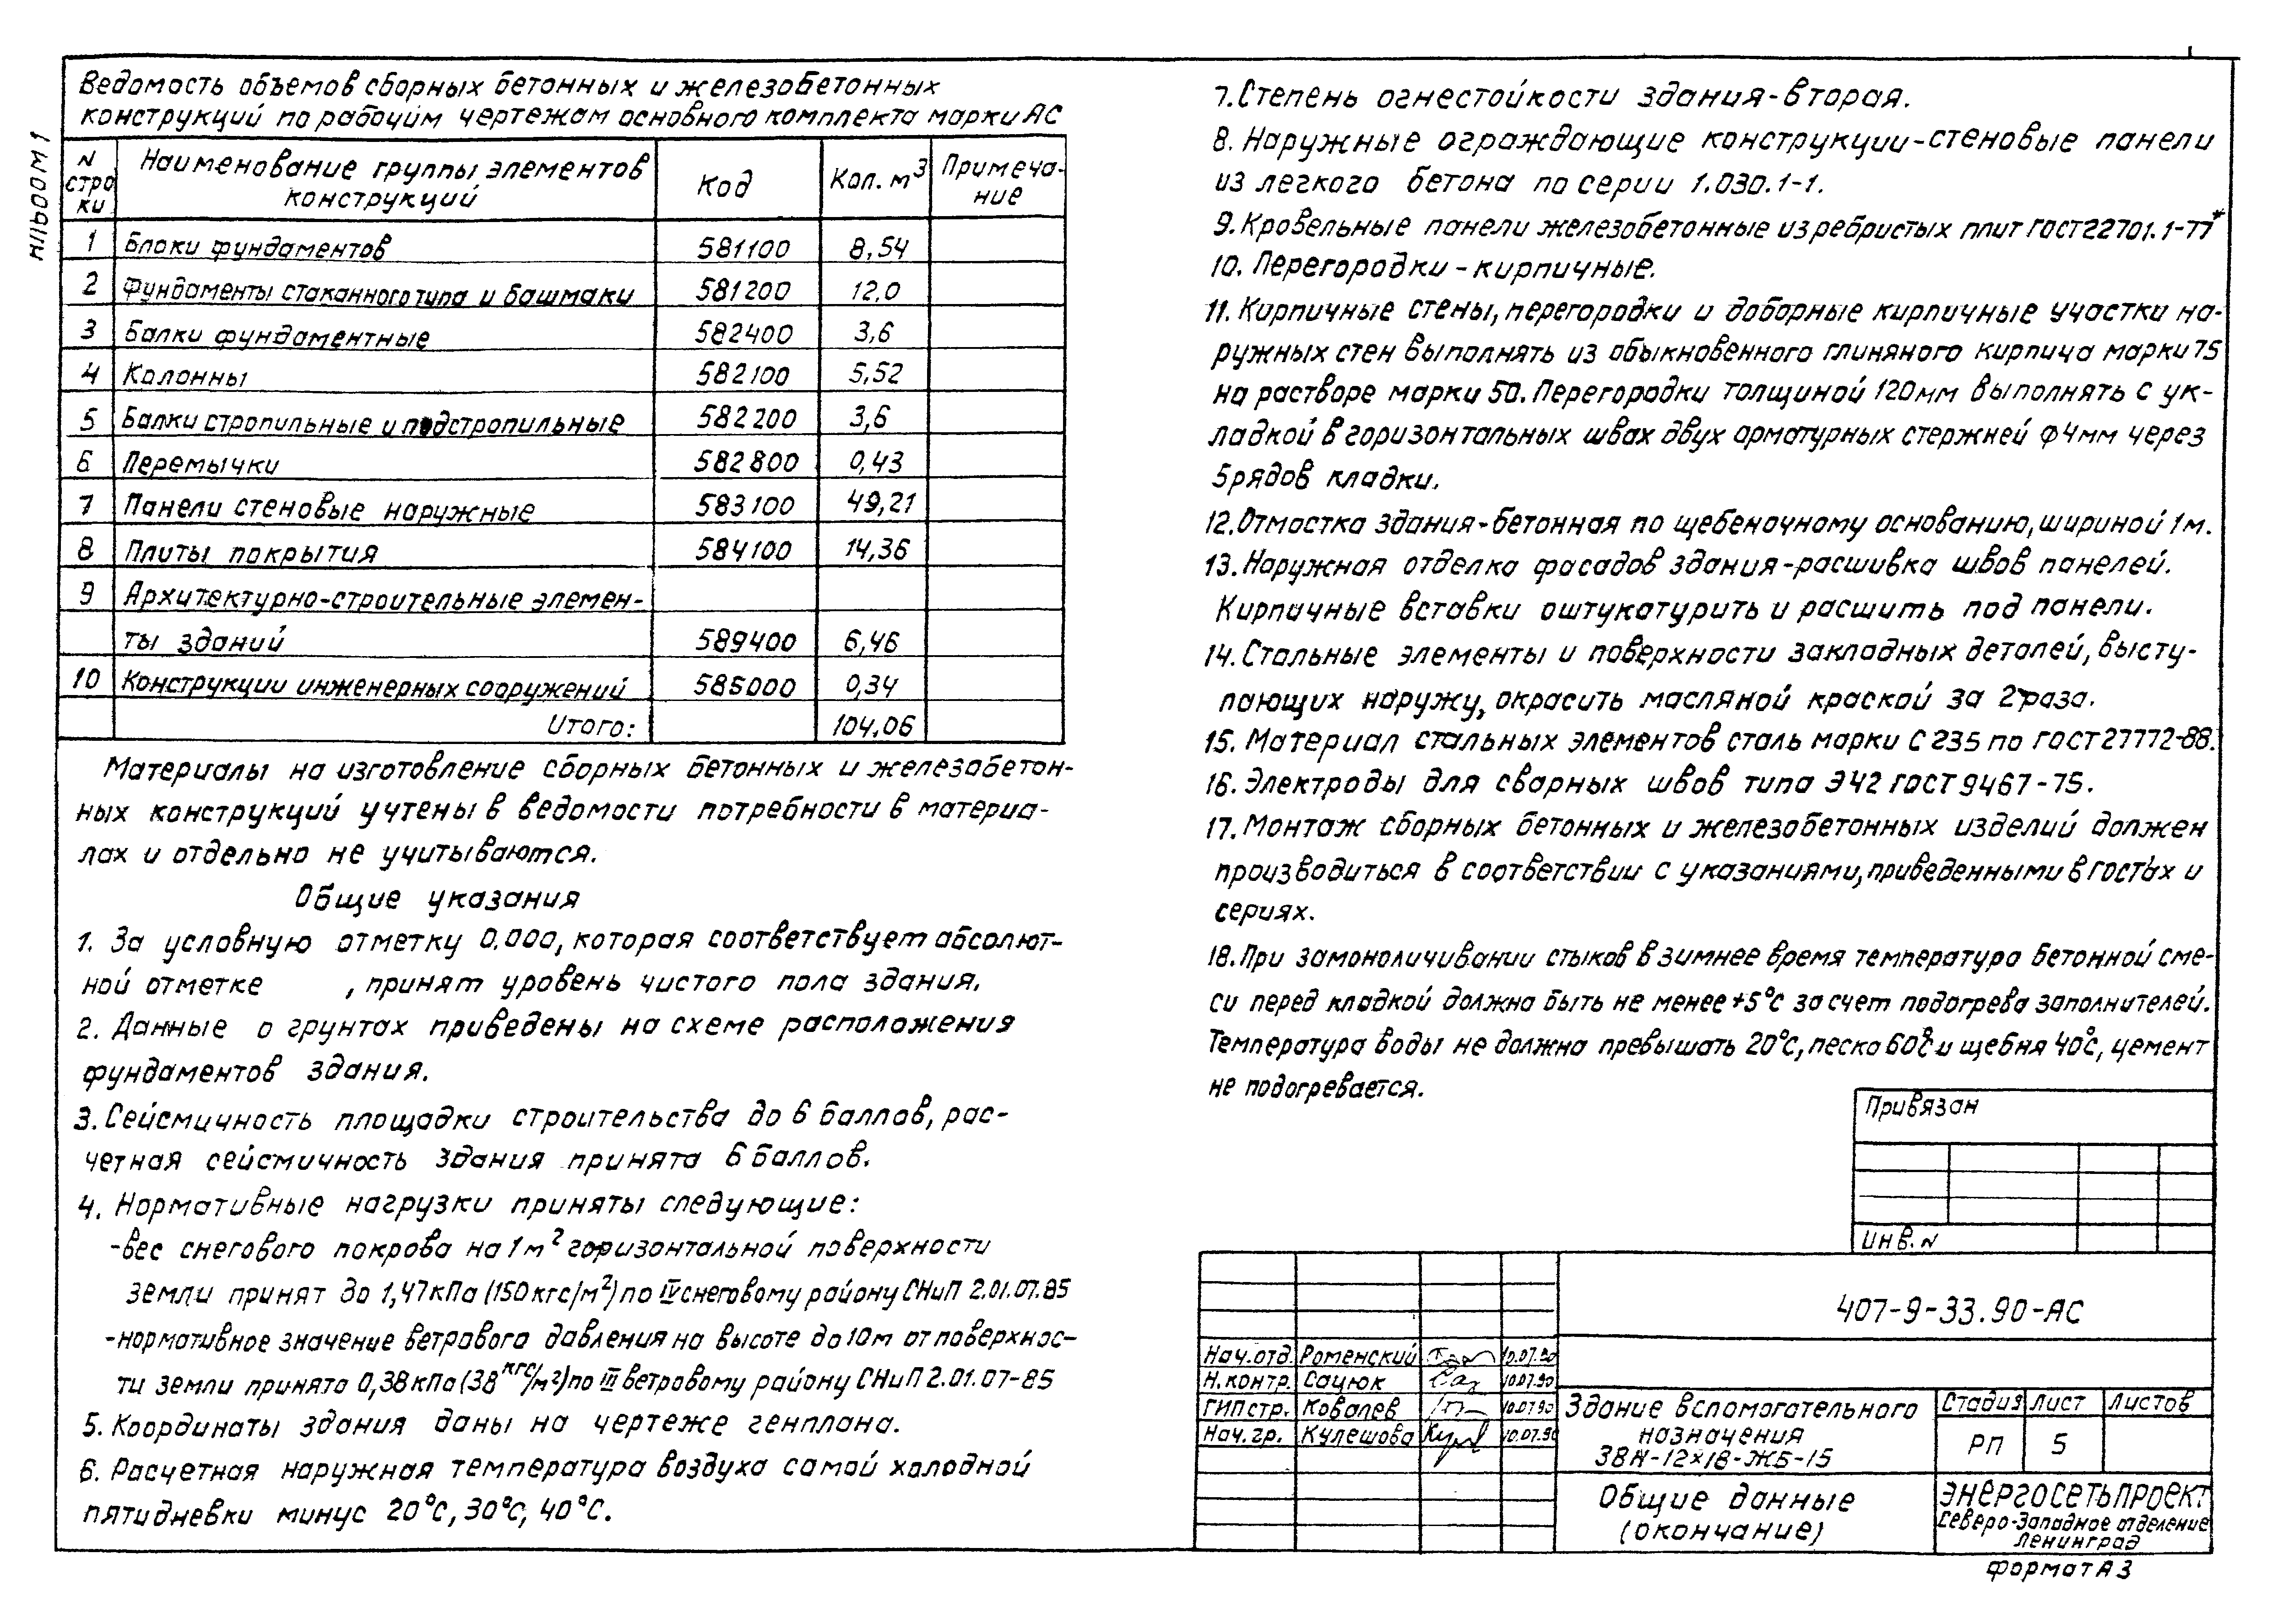 Альбом 1
Ведомость объемов сборных бетонных и железобетонных
конструкций по рабочим чертежам основного комплекта марки АС
N
стро
ки
Наименование группы элементов
конструкций
Код
Кол. м³
Примеча-
ние
1 Блоки фундаментов 581100 8,54
2 Фундаменты стаканного типа и башмаки 581200 12,0
3 Балки фундаментные 582400 3,6
4 Колонны 582100 5,52
5 Балки стропильные и подстропильные 582200 3,6
6 Перемычки 582800 0,43
7 Панели стеновые наружные 583100 49,21
8 Плиты покрытия 584100 14,36
9 Архитектурно-строительные элемен-
ты зданий 589400 6,46
10 Конструкции инженерных сооружений 585000 0,34
Итого: 104,06
Материалы на изготовление сборных бетонных и железабетон-
ных конструкций учтены в ведомости потребности в материа-
лах и отдельно не учитываются.
Общие указания
1. За условную отметку 0.000, которая соответствует абсолют-
ной отметке , принят уровень чистого пола здания.
2. Данные о грунтах приведены на схеме расположения
фундаментов здания.
3. Сейсмичность площадки строительства до 6 баллов, рас-
четная сейсмичность здания принята 6 баллов.
4. Нормативные нагрузки приняты следующие:
-вес снегового покрова на 1м² горизонтальной поверхности
земли принят до 1,47кПа (150кгс/м²) по IV снеговому району СНиП 2.01.07.85
-нормативное значение ветрового давления на высоте до 10м от поверхнос-
ти земли принято 0,38кПа (38 кгс/м²) по III ветровому району СНиП 2.01.07-85
5. Координаты здания даны на чертеже генплана.
6. Расчетная наружная температура воздуха самой холодной
пятидневки минус 20°С, 30°С, 40°С.
7. Степень огнестойкости здания-вторая.
8. Наружные ограждающие конструкции-стеновые панели
из легкого бетона по серии 1.030.1-1.
9. Кровельные панели железобетонные из ребристых плит ГОСТ 22701.1-77*
10. Перегородки - кирпичные.
11. Кирпичные стены, перегородки и доборные кирпичные участки на-
ружных стен выполнять из обыкновенного глиняного кирпича марки 75
на растворе марки 50. Перегородки толщиной 120мм выполнять с ук-
ладкой в горизонтальных швах двух арматурных стержней ф4мм через
5 рядов кладки.
12. Отмостка здания-бетонная по щебеночному основанию, шириной 1м.
13. Наружная отделка фасадов здания-расшивка швов панелей.
Кирпичные вставки оштукатурить и расшить под панели.
14. Стальные элементы и поверхности закладных деталей, высту-
пающих наружу, окрасить масляной краской за 2 раза.
15. Материал стальных элементов сталь марки С 235 по ГОСТ 27772-88.
16. Электроды для сварных швов типа Э42 ГОСТ 9467-75.
17. Монтаж сборных бетонных и железобетонных изделий должен
производиться в соответствии с указаниями, приведенными в ГОСТах и
сериях.
18. При замоноличивании стыков в зимнее время температура бетонной сме-
си перед кладкой должна быть не менее +5°С за счет подогрева заполнителей.
Температура воды не должна превышать 20°С, песка 60°С и щебня 40°С, цемент
не подогревается.
Привязан
Инв. N
407-9-33.90-АС
Нач. отд. Роменский 10.07.90
Н. контр. Сацюк 10.07.90
ГИП стр. Ковалев 10.07.90
Нач. гр. Кулешова 10.07.90
Здание вспомогательного
назначения
ЗВН-12×18-ЖБ-15
Стадия Лист Листов
РП 5
Общие данные
(окончание)
ЭНЕРГОСЕТЬПРОЕКТ
Северо-Западное отделение
Ленинград
Формат А3